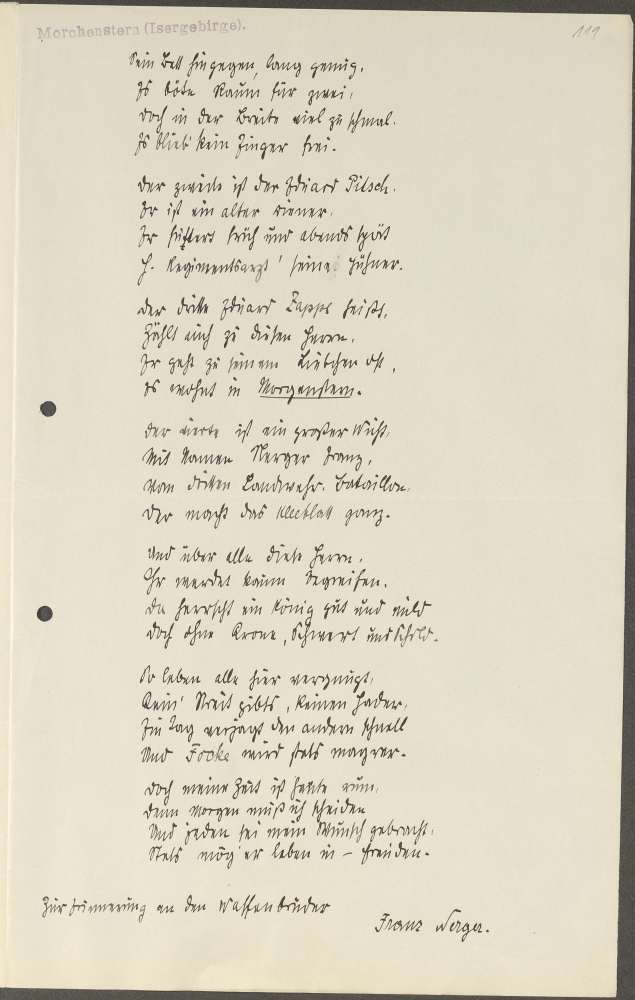 Morchenstern (Isergebirge).
119
Sein Bett hingegen, lang genug,
Es böte Raum für zwei,
Doch in der Breite viel zu schmal.
Es blieb kein Finger frei.
Der zweite ist der Eduard Pitsch.
Er ist ein alter Wiener.
Er füttert früh und abends spät
H. Regimentsarzt' seine Hühner.
Der dritte Eduard Zapps heißt,
Zählt auch zu diesen Herren.
Er geht zu seinem Liebchen oft,
Es wohnt in Morgenstern.
Der vierte ist ein großer Wicht,
Mit Namen Nerger Franz,
Vom dritten Landwehr. Bataillon,
Der macht das Kleeblatt ganz.
Und über alle diese Herren,
Ihr werdet kaum begreifen.
Da herrscht ein König gut und mild
Doch ohne Krone, Schwert und Schild.
So leben alle hier vergnügt,
Kein' Streit gibts, keinen Hader,
Ein Tag verjagt den andern schnell
Und Focke wird stets magrer.
Doch meine Zeit ist heute rum,
Denn morgen muß ich scheiden
Und jeden sei mein Wunsch gebracht,
Stets mög' er leben in – Freuden.
Zur Erinnerung an den Waffenbruder
Franz Nerger.